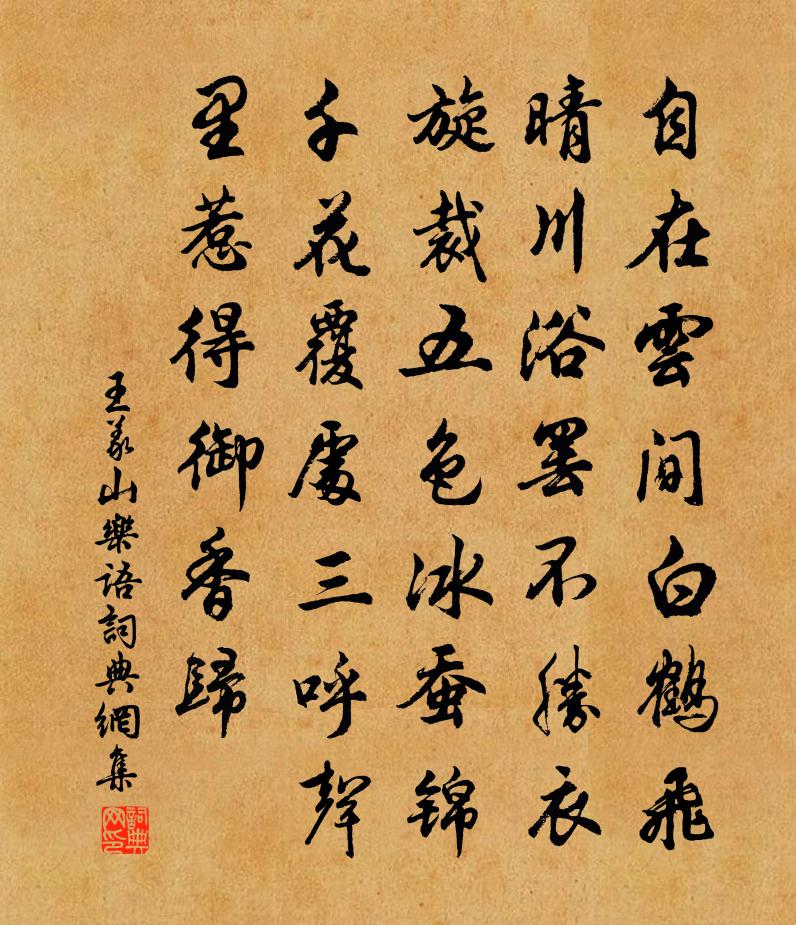 自在雲間白鶴飛
晴川浴罢不勝衣
旋裁五色冰蚕锦
千花覆處三呼聲
里惹得御香歸
王義山樂語詞典網集
詞典网印